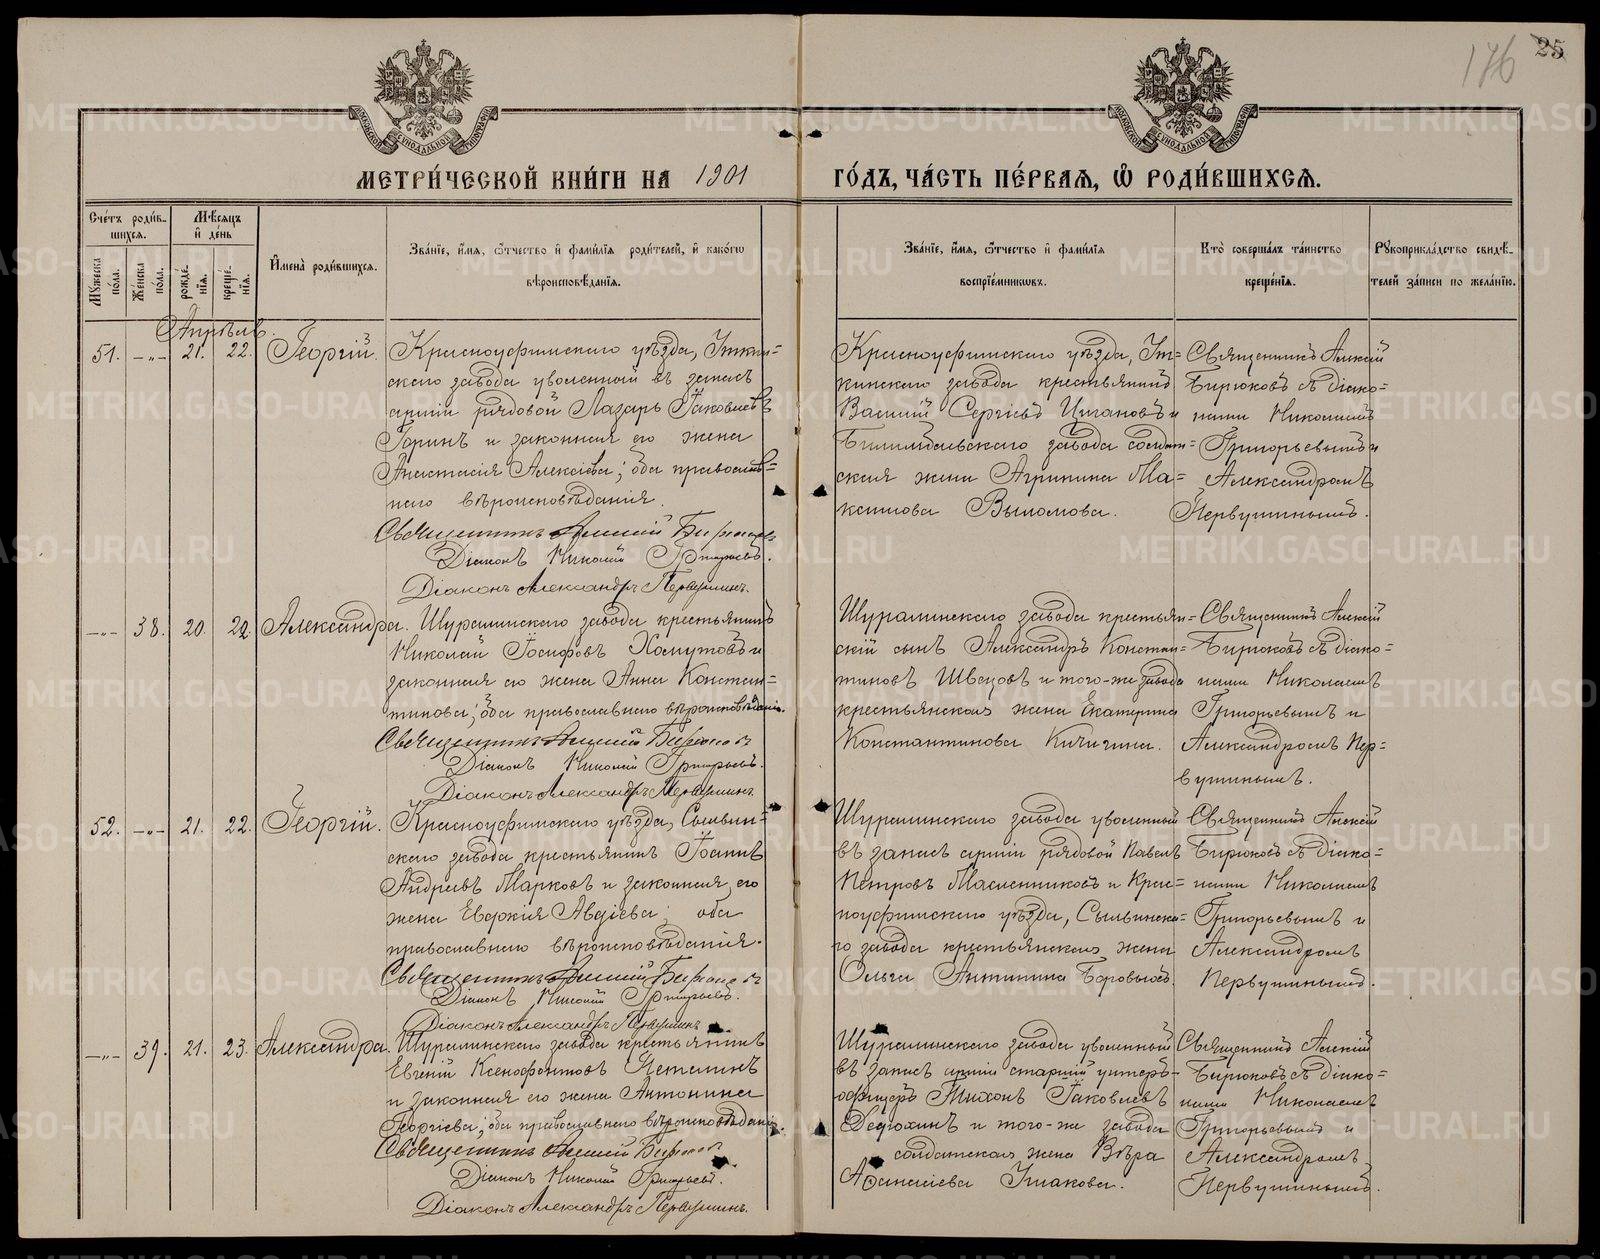 176 25
МЕТРИ́ЧЕСКОЙ КНИ́ГИ НА 1901 ГО́ДЪ, ЧА́СТЬ ПЕ́РВАѦ, Ѡ РОДИ́ВШИХСѦ.
Сче́тъ роди́в-
шихсѧ.
Мꙋжеска по́ла.
Же́нска по́ла.
Мѣ́сѧцъ
и҆ де́нь
рожде́нїѧ.
креще́нїѧ.
И҆мена̀ роди́вшихсѧ.
Зва́нїе, и҆́мѧ, ѻ҆́тчество и҆ фами́лїѧ роди́телей, и҆ како́гѡ
вѣроисповѣ́данїѧ.
Зва́нїе, и҆́мѧ, ѻ҆́тчество и҆ фами́лїѧ
воспрїе́мниковъ.
Кто̀ соверша́лъ та́инство
креще́нїѧ.
Рꙋкоприкла́дство свидѣ́-
телей за́писи по жела́нїю.
Апрѣль.
51. —„— 21. 22. Георгій.
Красноуфимскаго уѣзда, Иткин=
скаго завода уволенный въ запасъ
арміи рядовой Лазарь Іаковлевъ
Горинъ и законная его жена
Анастасія Алексіева; оба православ=
наго вѣроисповѣданія.
Священникъ Алексій Бирюковъ
Діаконъ Николай Григорьевъ.
Діаконъ Александръ Первушинъ.
Красноуфимскаго уѣзда, Ит=
кинскаго завода крестьянинъ
Василій Сергіевъ Цыгановъ и
Билимбаевскаго завода солдат=
ская жена Агрипина Ма=
ксимова Выломова.
Священникъ Алексій
Бирюковъ съ діако=
нами Николаемъ
Григорьевымъ и
Александромъ
Первушинымъ.
—„— 38. 20. 22. Александра.
Шуралинскаго завода крестьянинъ
Николай Іосифовъ Хомутовъ и
законная его жена Анна Констан=
тинова; оба православнаго вѣроисповѣданія.
Священникъ Алексій Бирюковъ
Діаконъ Николай Григорьевъ.
Діаконъ Александръ Первушинъ.
Шуралинскаго завода крестьян=
скій сынъ Александръ Констан=
тиновъ Швецовъ и того-же завода
крестьянская жена Екатерина
Константинова Кичигина.
Священникъ Алексій
Бирюковъ съ діако=
нами Николаемъ
Григорьевымъ и
Александромъ Пер=
вушинымъ.
52. —„— 21. 22. Георгій.
Красноуфимскаго уѣзда, Сылвин=
скаго завода крестьянинъ Іоаннъ
Андреевъ Марковъ и законная его
жена Евдокія Авдіева; оба
православнаго вѣроисповѣданія.
Священникъ Алексій Бирюковъ
Діаконъ Николай Григорьевъ.
Діаконъ Александръ Первушинъ
Шуралинскаго завода уволенный
въ запасъ арміи рядовой Павелъ
Петровъ Масленниковъ и Крас=
ноуфимскаго уѣзда, Сылвинска=
го завода крестьянская жена
Ольга Антипина Боровыхъ.
Священникъ Алексій
Бирюковъ съ діако=
нами Николаемъ
Григорьевымъ и
Александромъ
Первушинымъ.
—„— 39. 21. 23. Александра.
Шуралинскаго завода крестьянинъ
Евгеній Ксенофонтовъ
и законная его жена Антонина
Георгіева; оба православнаго вѣроисповѣданія.
Священникъ Алексій Бирюковъ
Діаконъ Николай Григорьевъ.
Діаконъ Александръ Первушинъ.
Шуралинскаго завода уволенный
въ запасъ арміи старшій унтеръ-
офицеръ Тихонъ Іаковлевъ
Дедюхинъ и того-же завода
солдатская жена Вѣра
Аѳанасіева Ушакова.
Священникъ Алексій
Бирюковъ съ діако=
нами Николаемъ
Григорьевымъ и
Александромъ
Первушинымъ.
METRIKI.GASO-URAL.RU